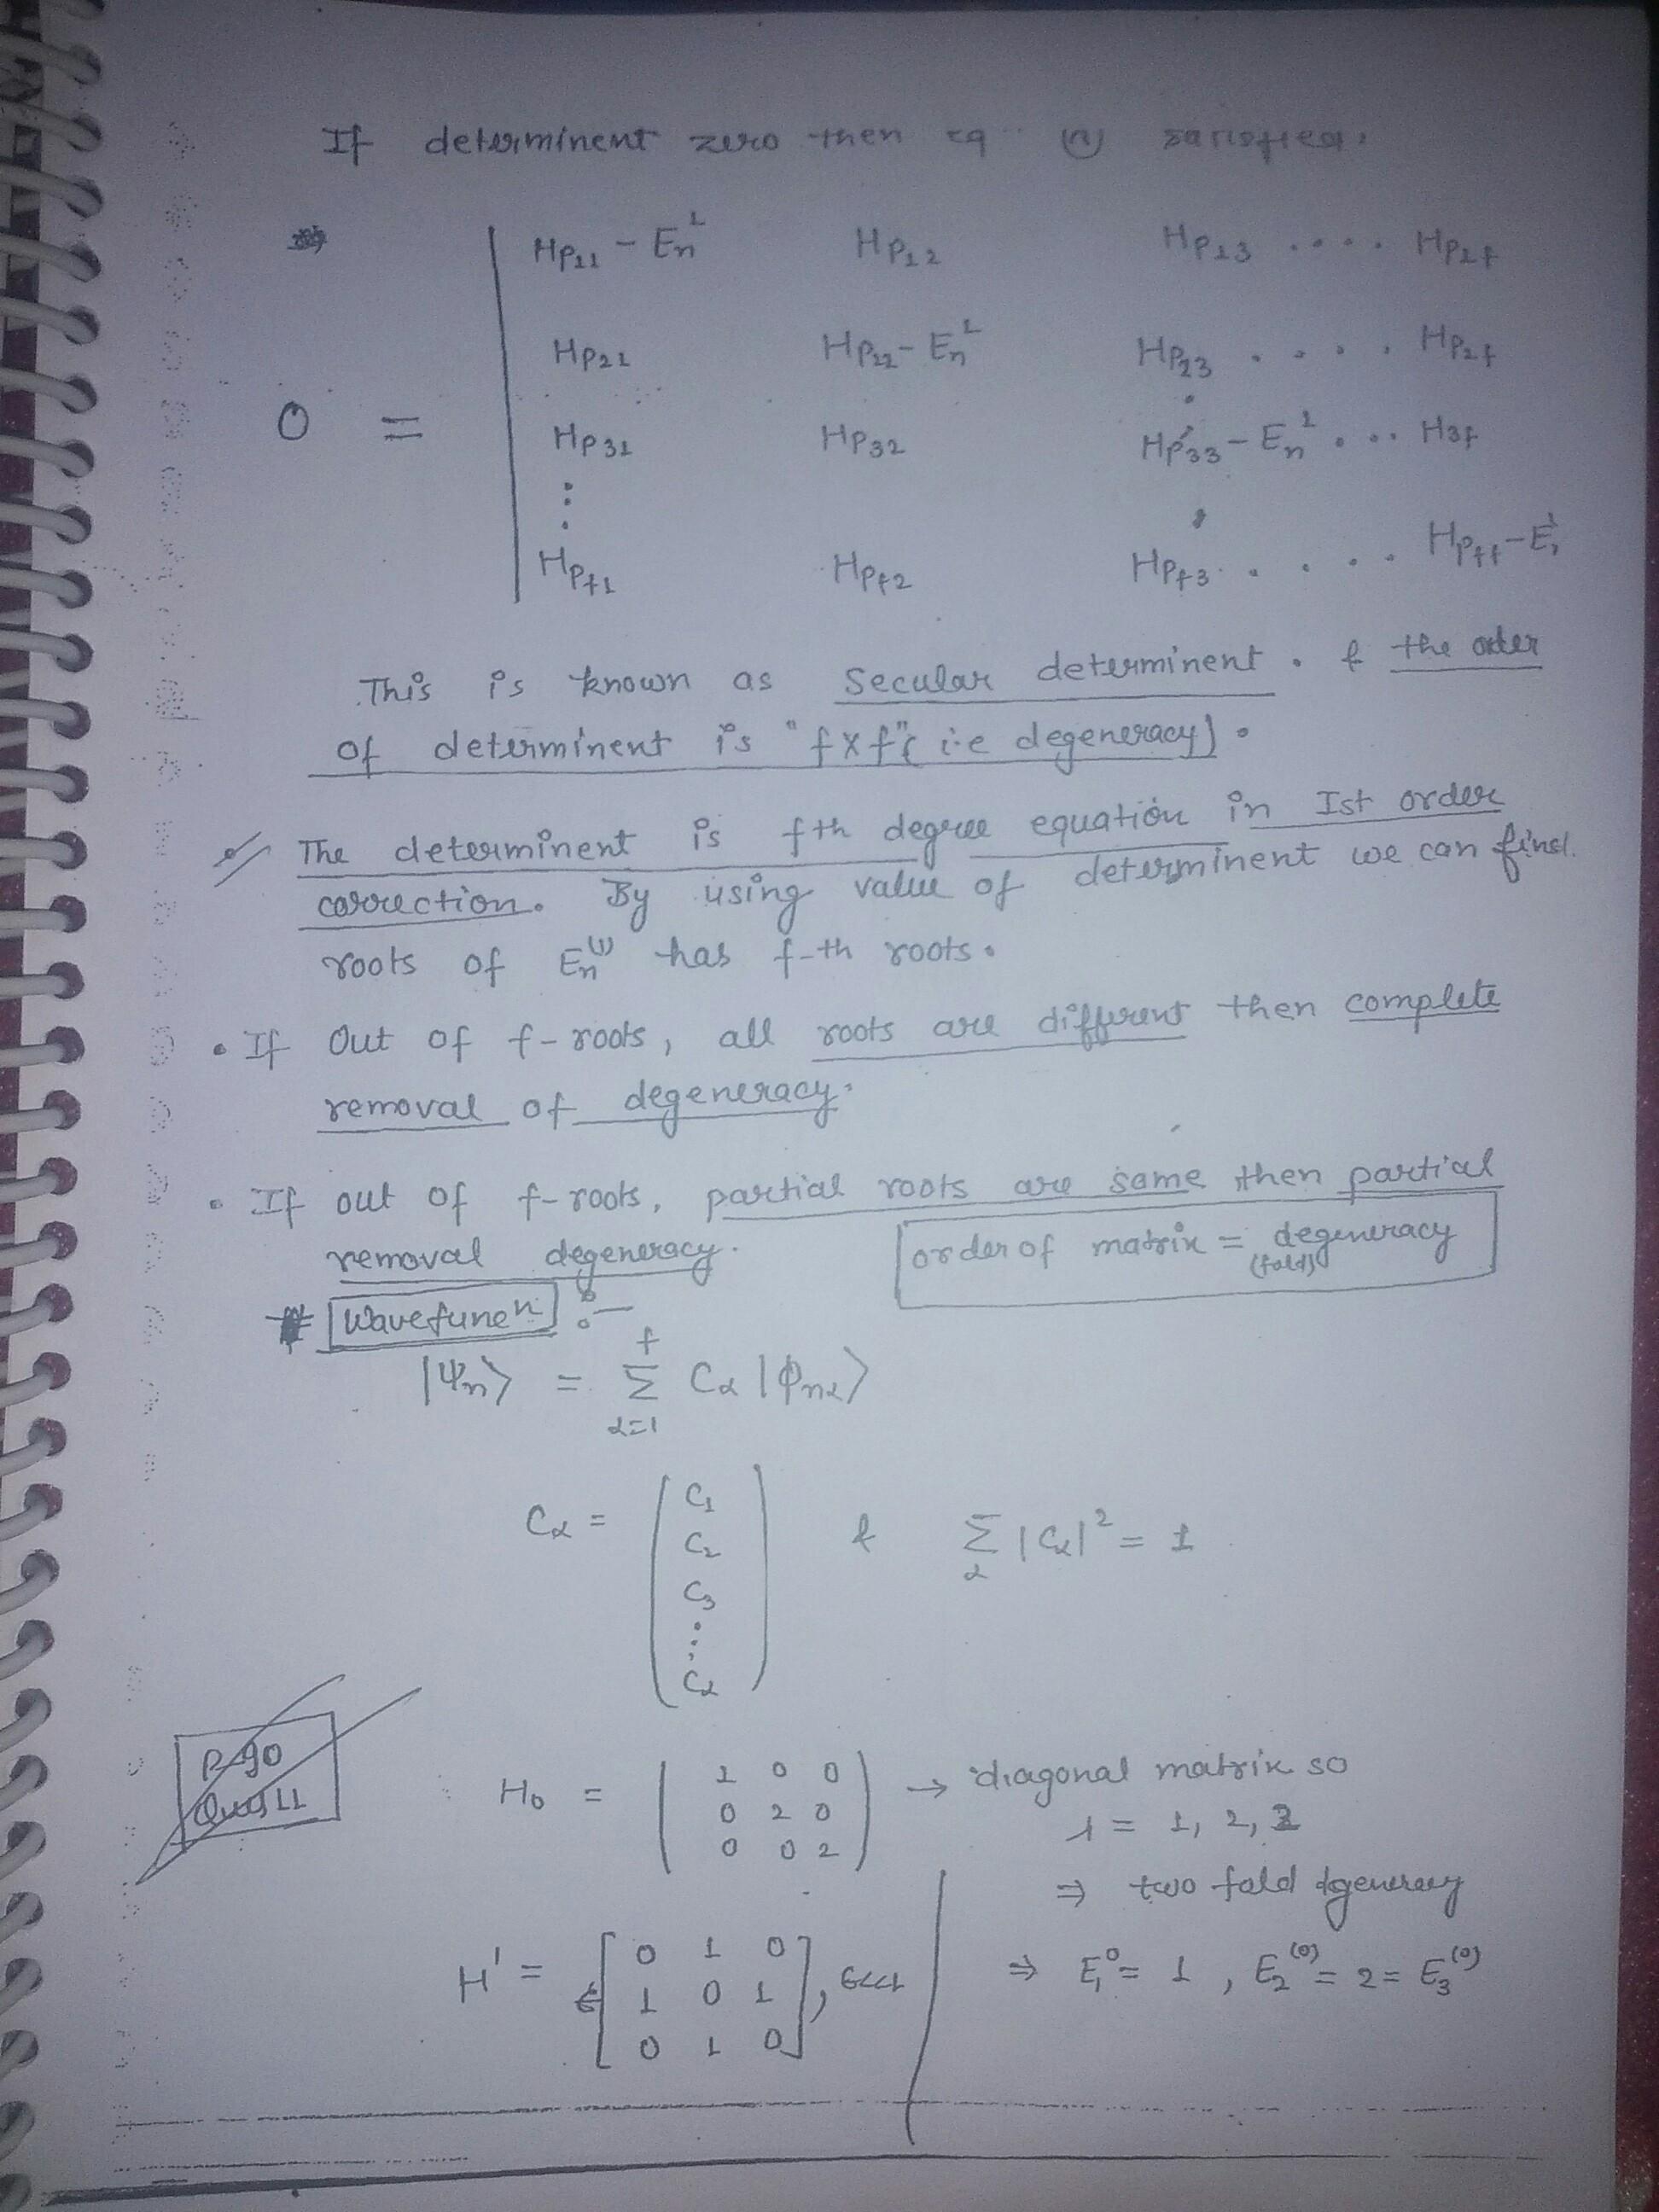 If determinent zero then eq (n) satisfied.
Hp₁₁ - Eₙ¹ Hp₁₂ Hp₁₃ .... Hp₁f
Hp₂₁ Hp₂₂ - Eₙ¹ Hp₂₃ .... Hp₂f
0 = Hp₃₁ Hp₃₂ Hp₃₃ - Eₙ¹ ... H₃f
⋮
Hpf₁ Hpf₂ Hpf₃ .... Hpff - E₁¹
This is known as Secular determinent. & the order
of determinent is "f×f" (i.e degeneracy).
The determinent is fth degree equation in Ist order
correction. By using value of determinent we can find
roots of Eₙ⁽¹⁾ has f-th roots.
• If Out of f-roots, all roots are different then complete
removal of degeneracy.
• If out of f-roots, partial roots are same then partial
removal degeneracy.
order of matrix = degeneracy
(fold)
# Wavefuncⁿ :-
|Ψₙ⟩ = Σ_{α=1}^{f} Cα |ϕₙα⟩
Cα = ( C₁ C₂ C₃ ⋮ Cα ) & Σ_α |Cα|² = 1
P-90
Que 11
H₀ = ( 1 0 0
0 2 0
0 0 2 ) → diagonal matrix so
λ = 1, 2, 2
⇒ two fold degeneracy
H' = ϵ [ 0 1 0
1 0 1
0 1 0 ], ϵ<<1
⇒ E₁⁰ = 1, E₂⁽⁰⁾ = 2 = E₃⁽⁰⁾